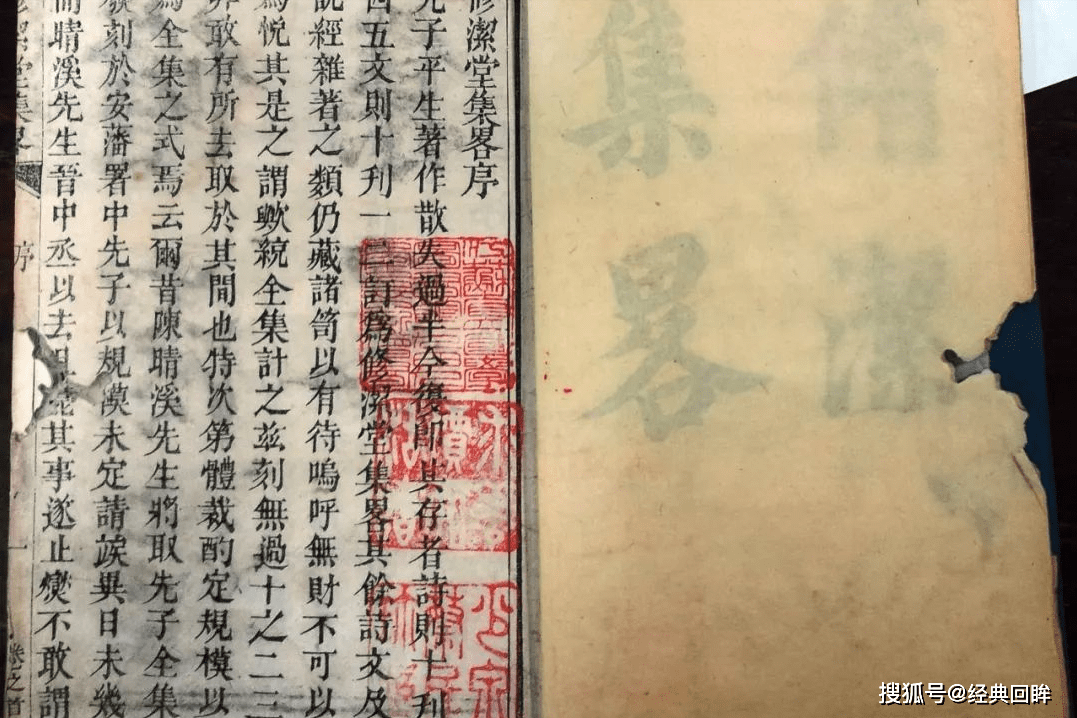 集畧
修潔堂集畧序
先子平生著作散失過半今復即其存者詩則十刊
四五文則十刊一二訂爲修潔堂集畧其餘詩文及
說經雜著之類仍藏諸笥以有待嗚呼無財不可以
爲悅其是之謂歟統全集計之茲刻無過十之二三
非敢有所去取於其間也特次第體裁酌定規模以
爲全集之式焉云爾昔陳晴溪先生將取先子全集
發刻於安藩署中先子以規模未定請竢異日未幾
而晴溪先生晉中丞以去其事遂止燮不敢謂
修潔堂集畧 序 一 卷之首
搜狐号@经典回眸